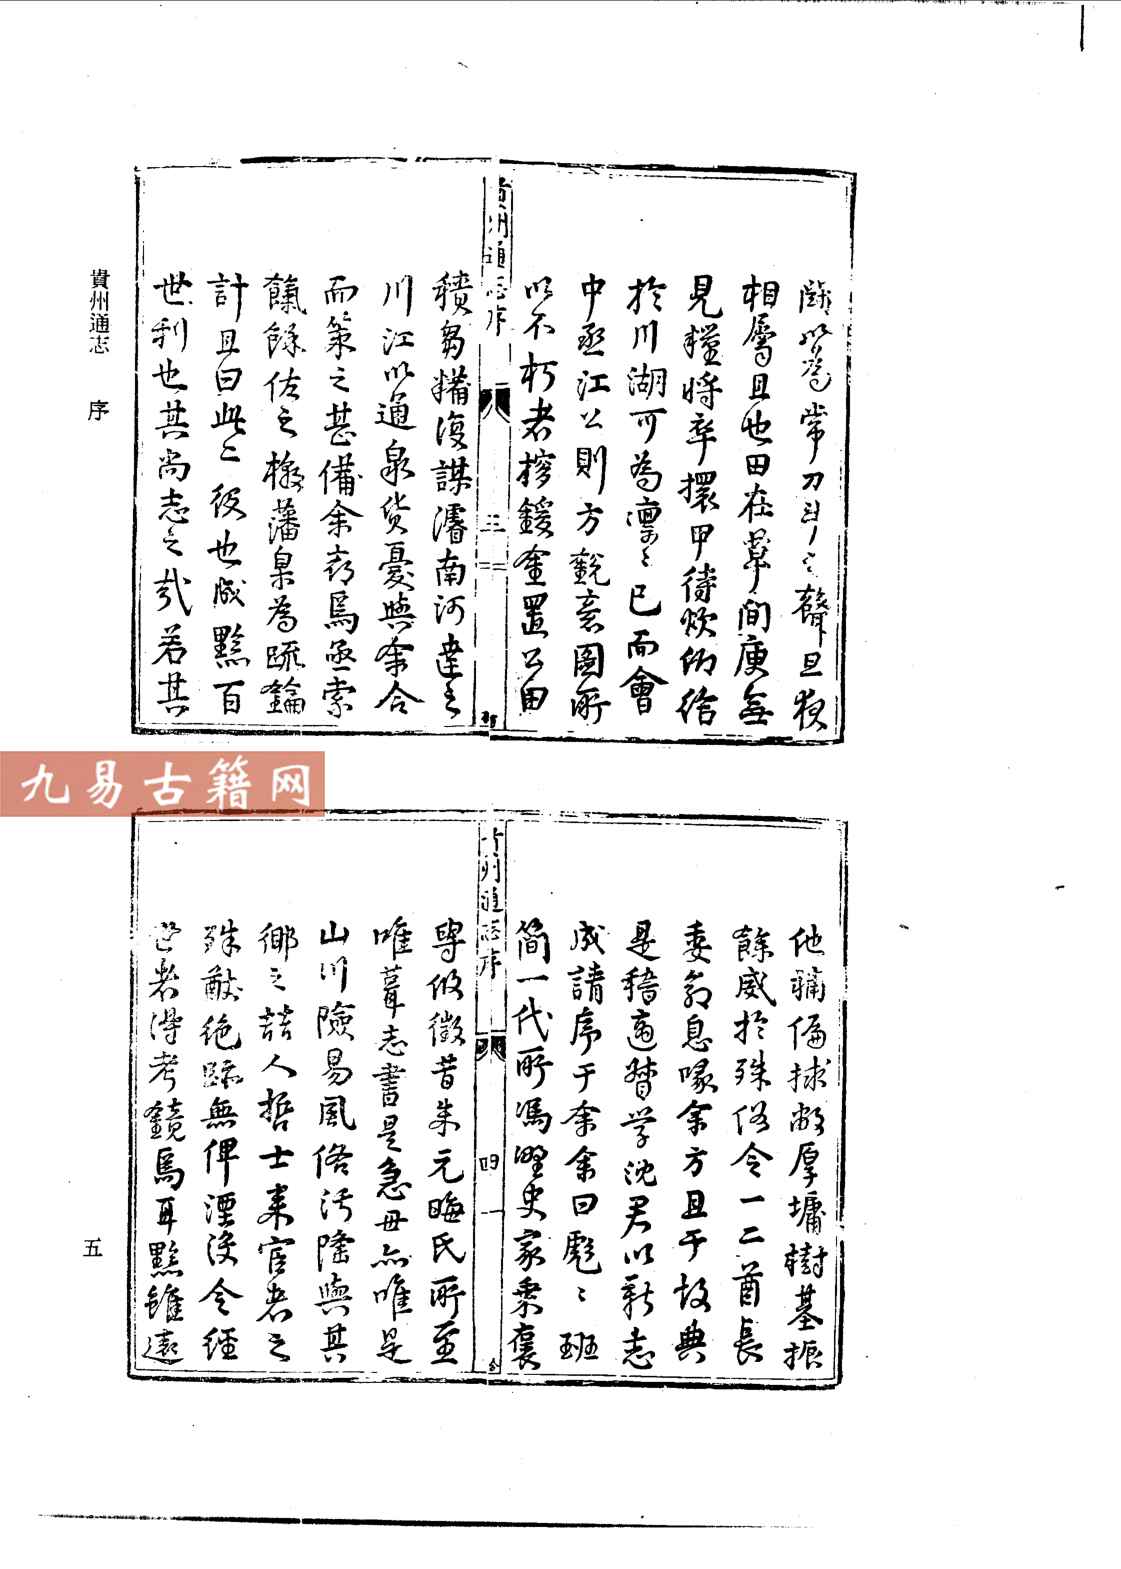 貴州通志 序
鬭以為常刀斗之聲旦夜
相屬且也田在草間庚每
見糧將卒擐甲待炊仰給
於川湖可為凜凜已而會
中丞江公則方觀意圖所
以不朽者捐鍰金置公田
貴州通志序
三
積芻糒復謀濬南河達之
川江以通泉貨憂與余合
而策之甚備余亦焉亟索
餼餘佐之檄藩臬為疏鑰
計且曰此二役也成黔百
世利也其尚志之哉若其
九易古籍网
他稱偏捄敝厚墉樹基振
餘威於殊俗令一二酋長
委命息喙余方且于故典
是稽適督学沈君以新志
成請序于余余曰彪彪班
簡一代所馮野史家乘裒
貴州通志序
四
專攸徵昔朱元晦氏所至
唯葺志書是急毋亦唯是
山川險易風俗汚隆與其
鄉之喆人哲士来官者之
殊猷絶跡無俾湮没令經
世者得考鏡焉耳黔雖遠
五